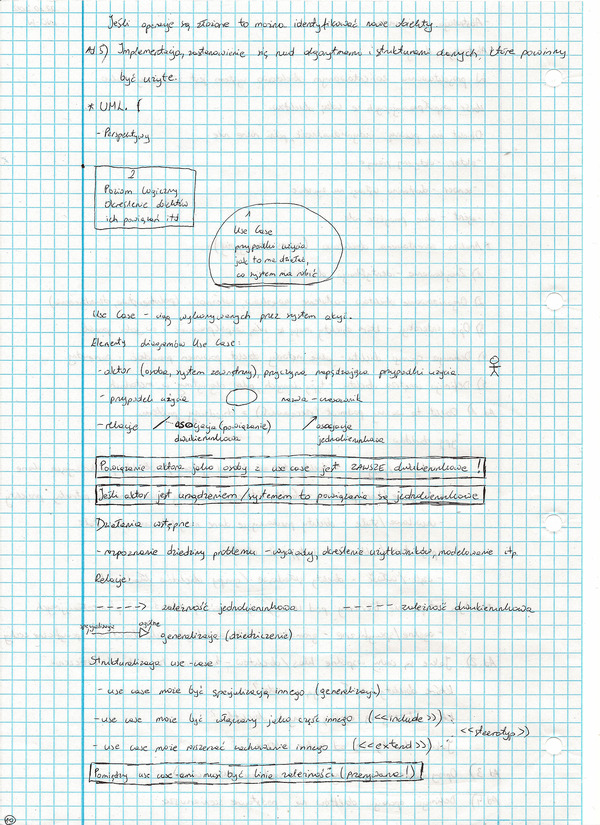 Jeśli operacje są złożone to można identyfikować nowe obiekty
Ad 5) Implementacja, zastanowienie się nad algorytmami i strukturami danych, które powinny
być użyte.
* UML.
- Perspektywy
2
Poziom logiczny
Określenie obiektów
ich powiązań itd
1
Use Case
przypadki użycia
jak to ma działać,
co system ma robić
Use Case - ciąg wykonywanych przez system akcji.
Elementy diagramów Use Case:
- aktor (osoba, system zewnętrzny), przyczyna napędzająca przypadki użycia
- przypadek użycia nazwa - czasownik
- relacje asocjacja (powiązanie) asocjacja
dwukierunkowa jednokierunkowa
Powiązanie aktora jako osoby z use case jest ZAWSZE dwukierunkowe!
Jeśli aktor jest urządzeniem/systemem to powiązania są jednokierunkowe
Działania wstępne:
- rozpoznanie dziedziny problemu - wywiady, określenie użytkowników, modelowanie itp
Relacje:
-----> zależność jednokierunkowa ----- zależność dwukierunkowa
specjalizacja ogólne
generalizacja (dziedziczenie)
Strukturalizacja use-case
- use case może być specjalizacją innego (generalizacja)
- use case może być włączony jako część innego (<<include>>)
<<stereotyp>>
- use case może rozszerzać zachowanie innego (<<extend>>)
Pomiędzy use case-ami musi być linia zależności (przerywana!)